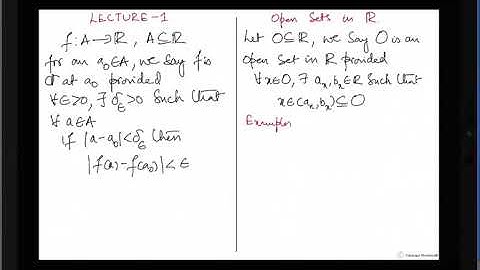 LECTURE-1
f: A→ℝ, A⊆ℝ
for an a₀∈A, we say f is
cts at a₀ provided
∀ε>0, ∃ δ_ε>0 such that
∀ a∈A
if |a-a₀|<δ_ε then
|f(a)-f(a₀)|<ε
Open Sets in ℝ
Let O⊆ℝ, we say O is an
open set in ℝ provided
∀x∈O, ∃ aₓ,bₓ∈ℝ such that
x∈(aₓ,bₓ)⊆O
Examples